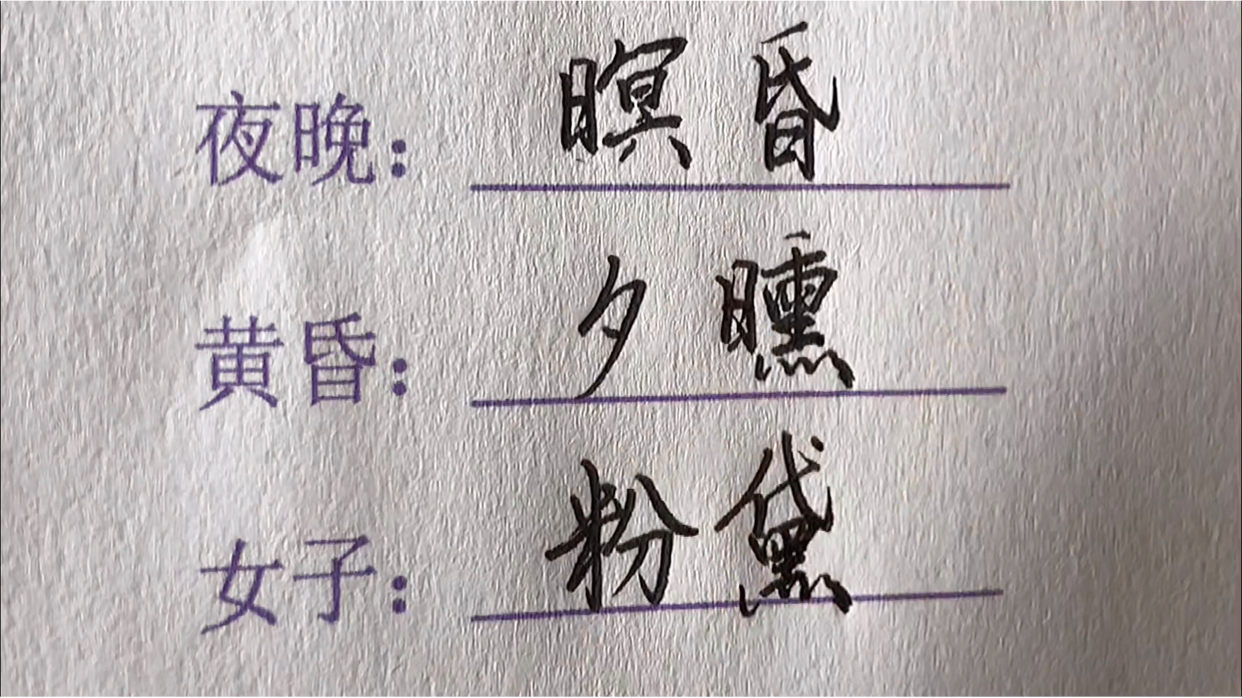 夜晚：暝昏
黄昏：夕曛
女子：粉黛